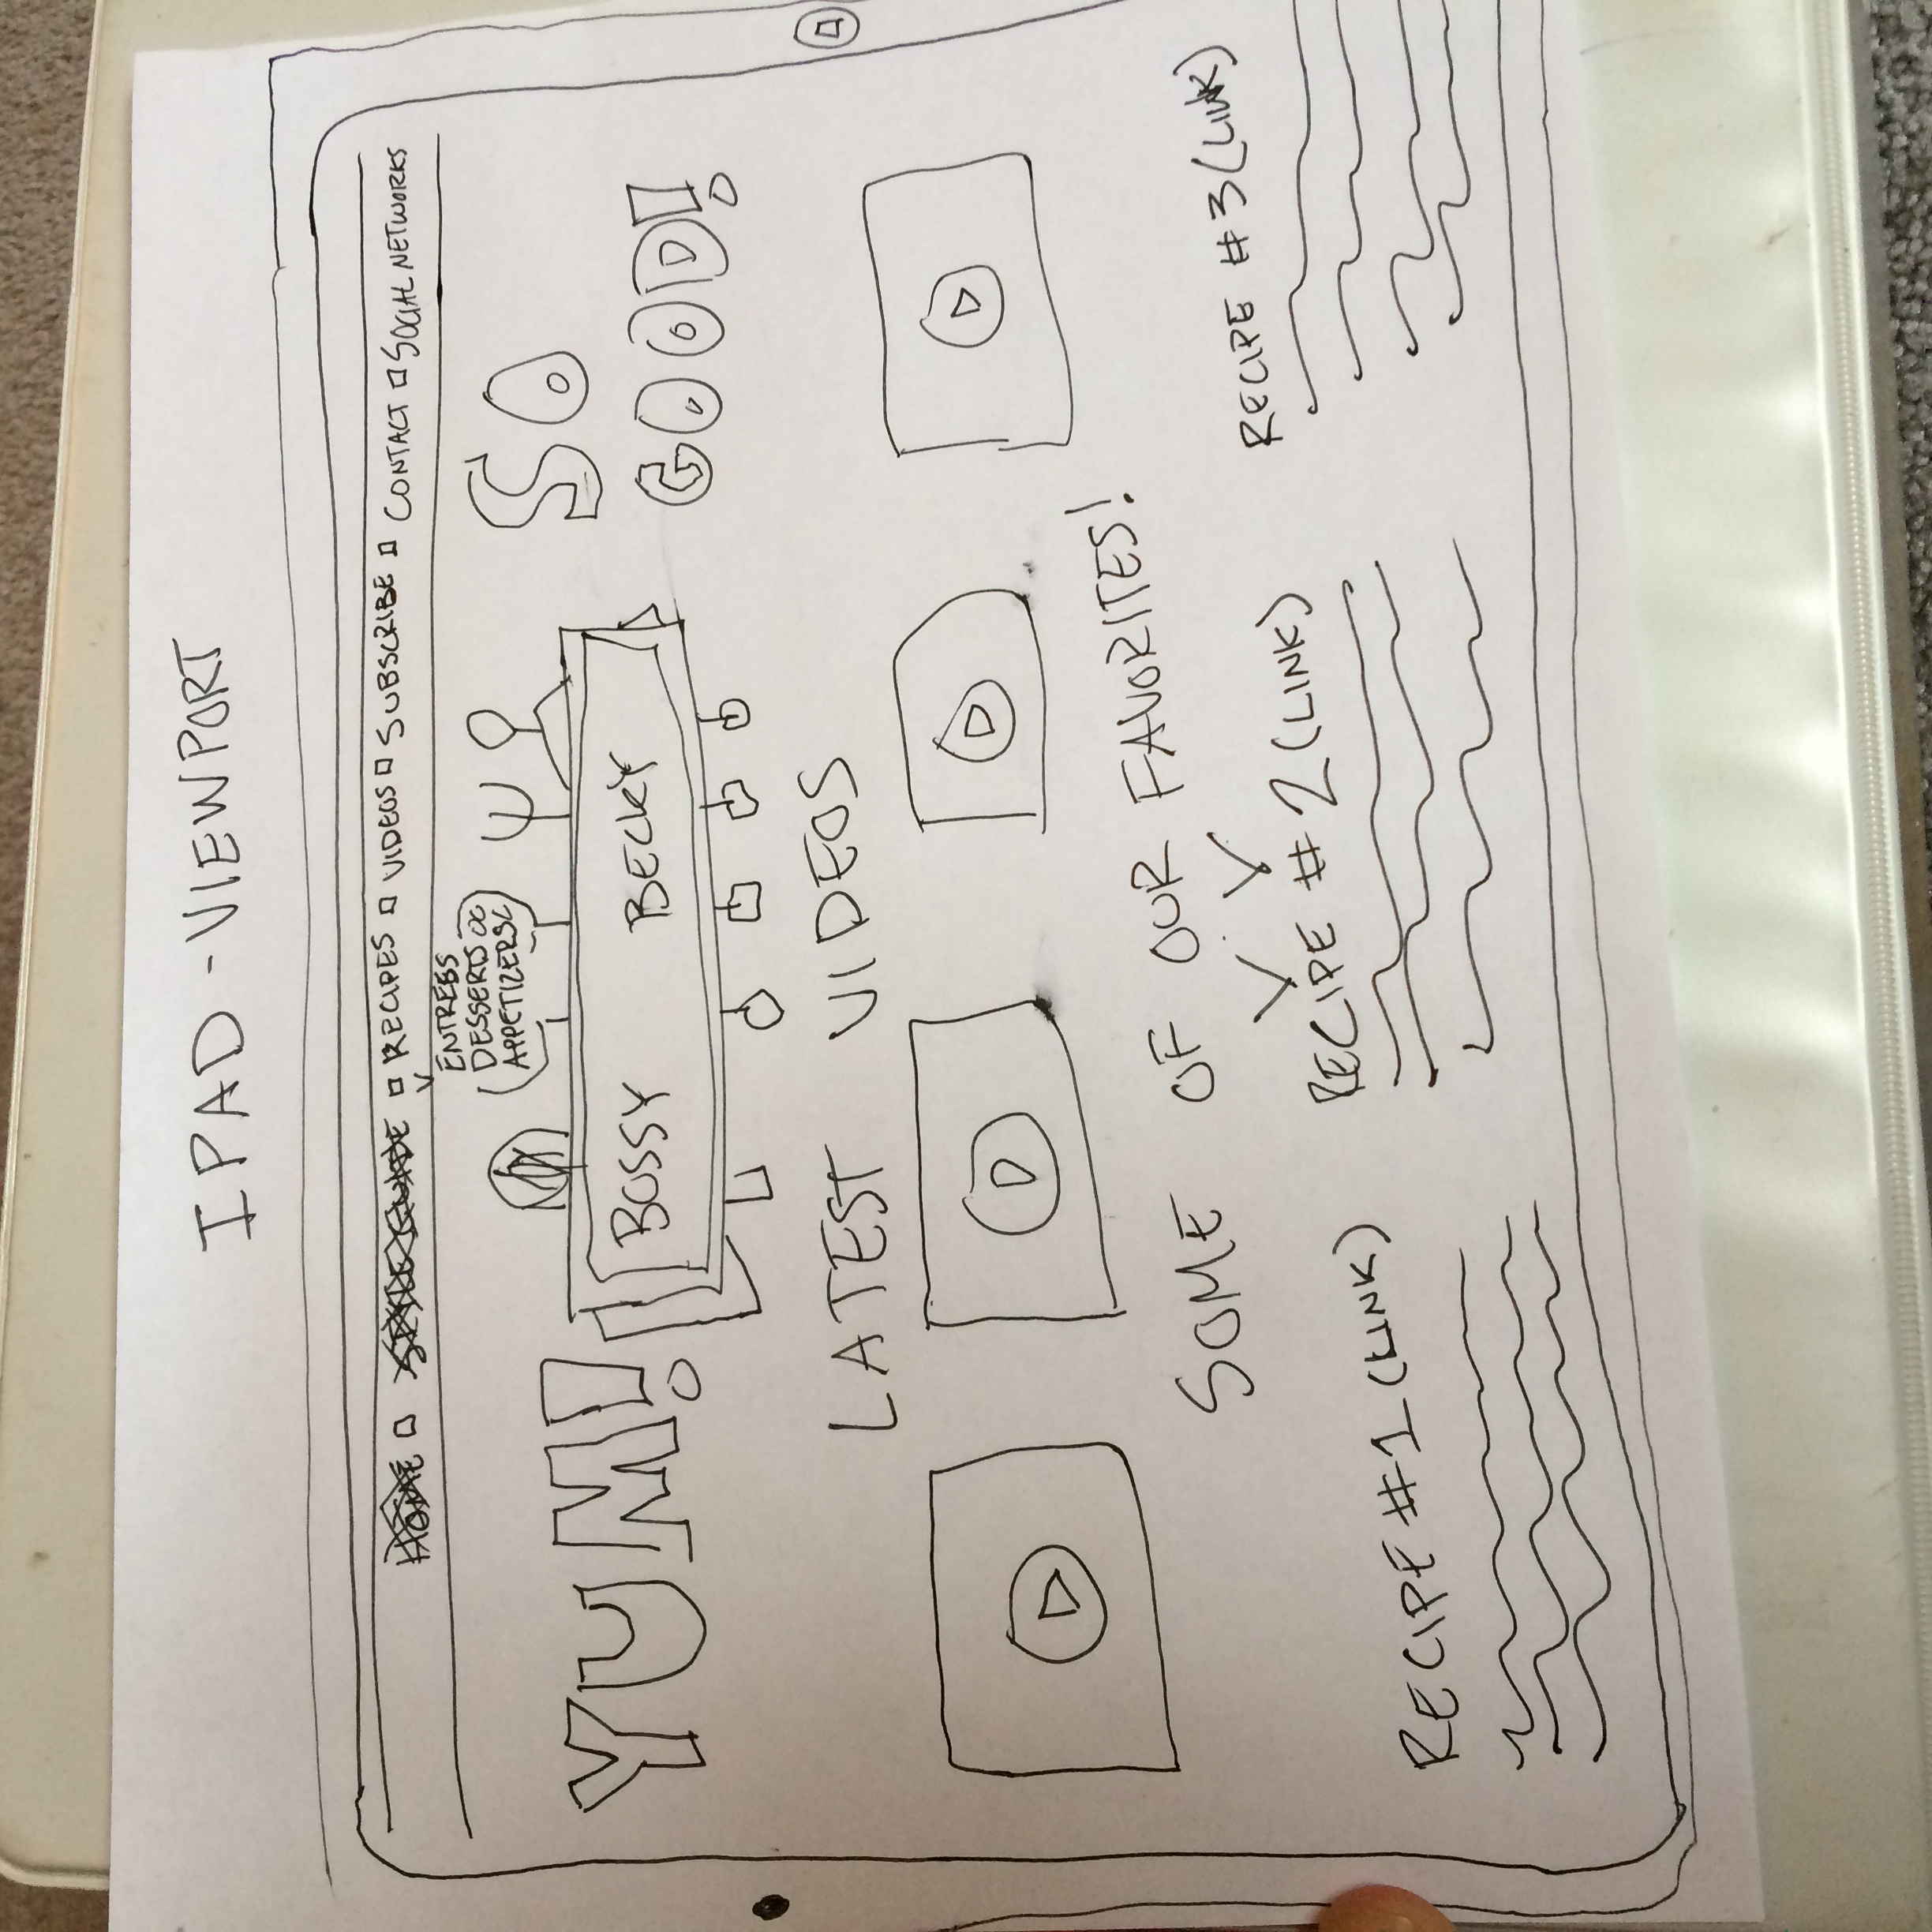 IPAD - VIEWPORT
HOME STYLE GUIDE RECIPES VIDEOS SUBSCRIBE CONTACT SOCIAL NETWORKS
ENTREES
DESSERTS
APPETIZERS
YUM!
BOSSY BECKY
SO
GOOD!
LATEST VIDEOS
SOME OF OUR FAVORITES!
RECIPE #1 (LINK)
RECIPE #2 (LINK)
RECIPE #3 (LINK)